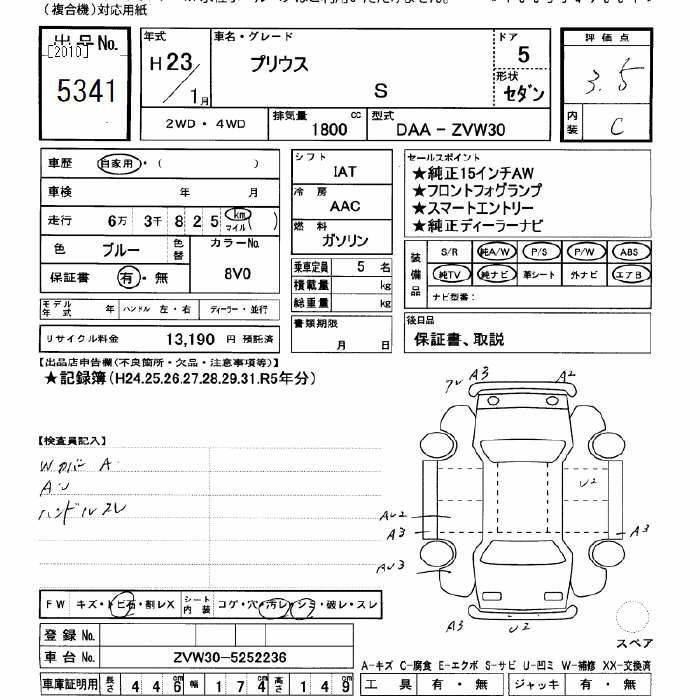 (複合機)対応用紙
出品No.
[2010]
5341
年式
H23/1月
車名・グレード
プリウス
S
ドア
5
形状
セダン
評価点
3.5
内装
C
2WD・4WD
排気量
1800 cc
型式
DAA－ZVW30
車歴 自家用・( )
車検 年 月
走行 6万 3千 8 2 5 km マイル ( )
色 ブルー 色替
カラーNo.
8V0
保証書 有・無
モデル年式 年 ハンドル 左・右 ディーラー・並行
リサイクル料金 13,190 円 預託済
シフト
IAT
冷房
AAC
燃料
ガソリン
乗車定員 5 名
積載量 kg
総重量 kg
書類期限
月 日
セールスポイント
★純正15インチAW
★フロントフォグランプ
★スマートエントリー
★純正ディーラーナビ
装備品
S/R 純A/W P/S P/W ABS
純TV 純ナビ 革シート 外ナビ エアB
ナビ型番：
後日品
保証書、取説
【出品店申告欄(不良箇所・欠品・注意事項等)】
★記録簿(H24.25.26.27.28.29.31.R5年分)
【検査員記入】
Wカバー A
AU
ハンドルスレ
A3
A2
U2
AU2
A3
A3
AU3
A3
U2
FW キズ・トビ石・割レX
シート内装 コゲ・穴・汚レ・シミ・破レ・スレ
登録No.
車台No. ZVW30-5252236
車庫証明用 長さ 4 4 6 cm 幅 1 7 4 cm 高さ 1 4 9 cm
スペア
A-キズ C-腐食 E-エクボ S-サビ U-凹ミ W-補修 XX-交換済
工具 有・無 ジャッキ 有・無